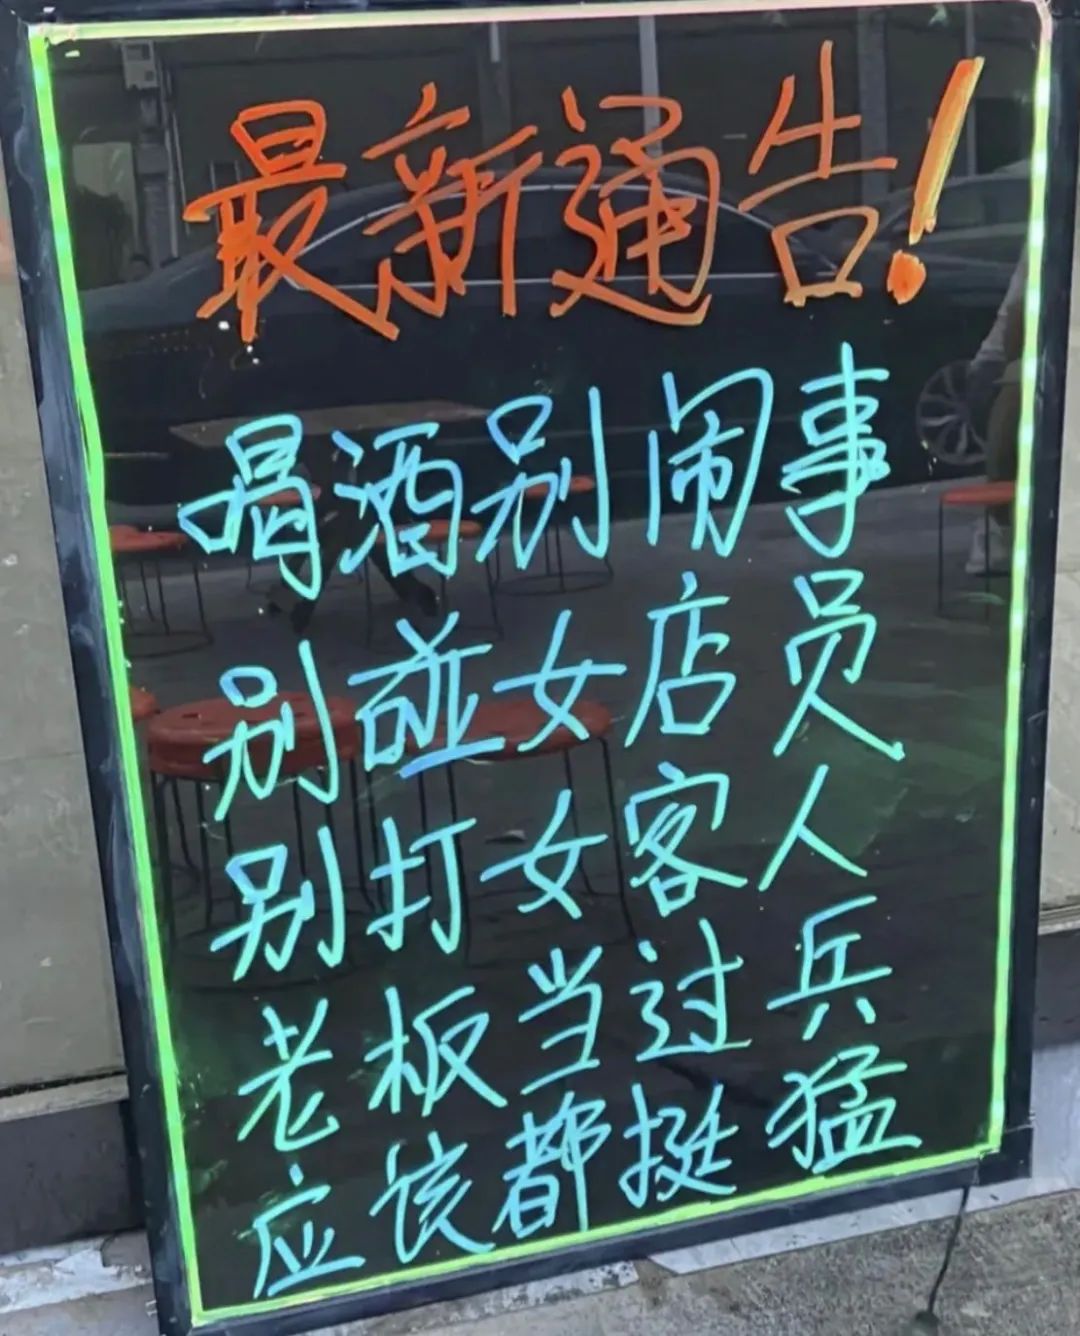 最新通告！
喝酒别闹事
别碰女店员
别打女客人
老板当过兵
应该都挺猛